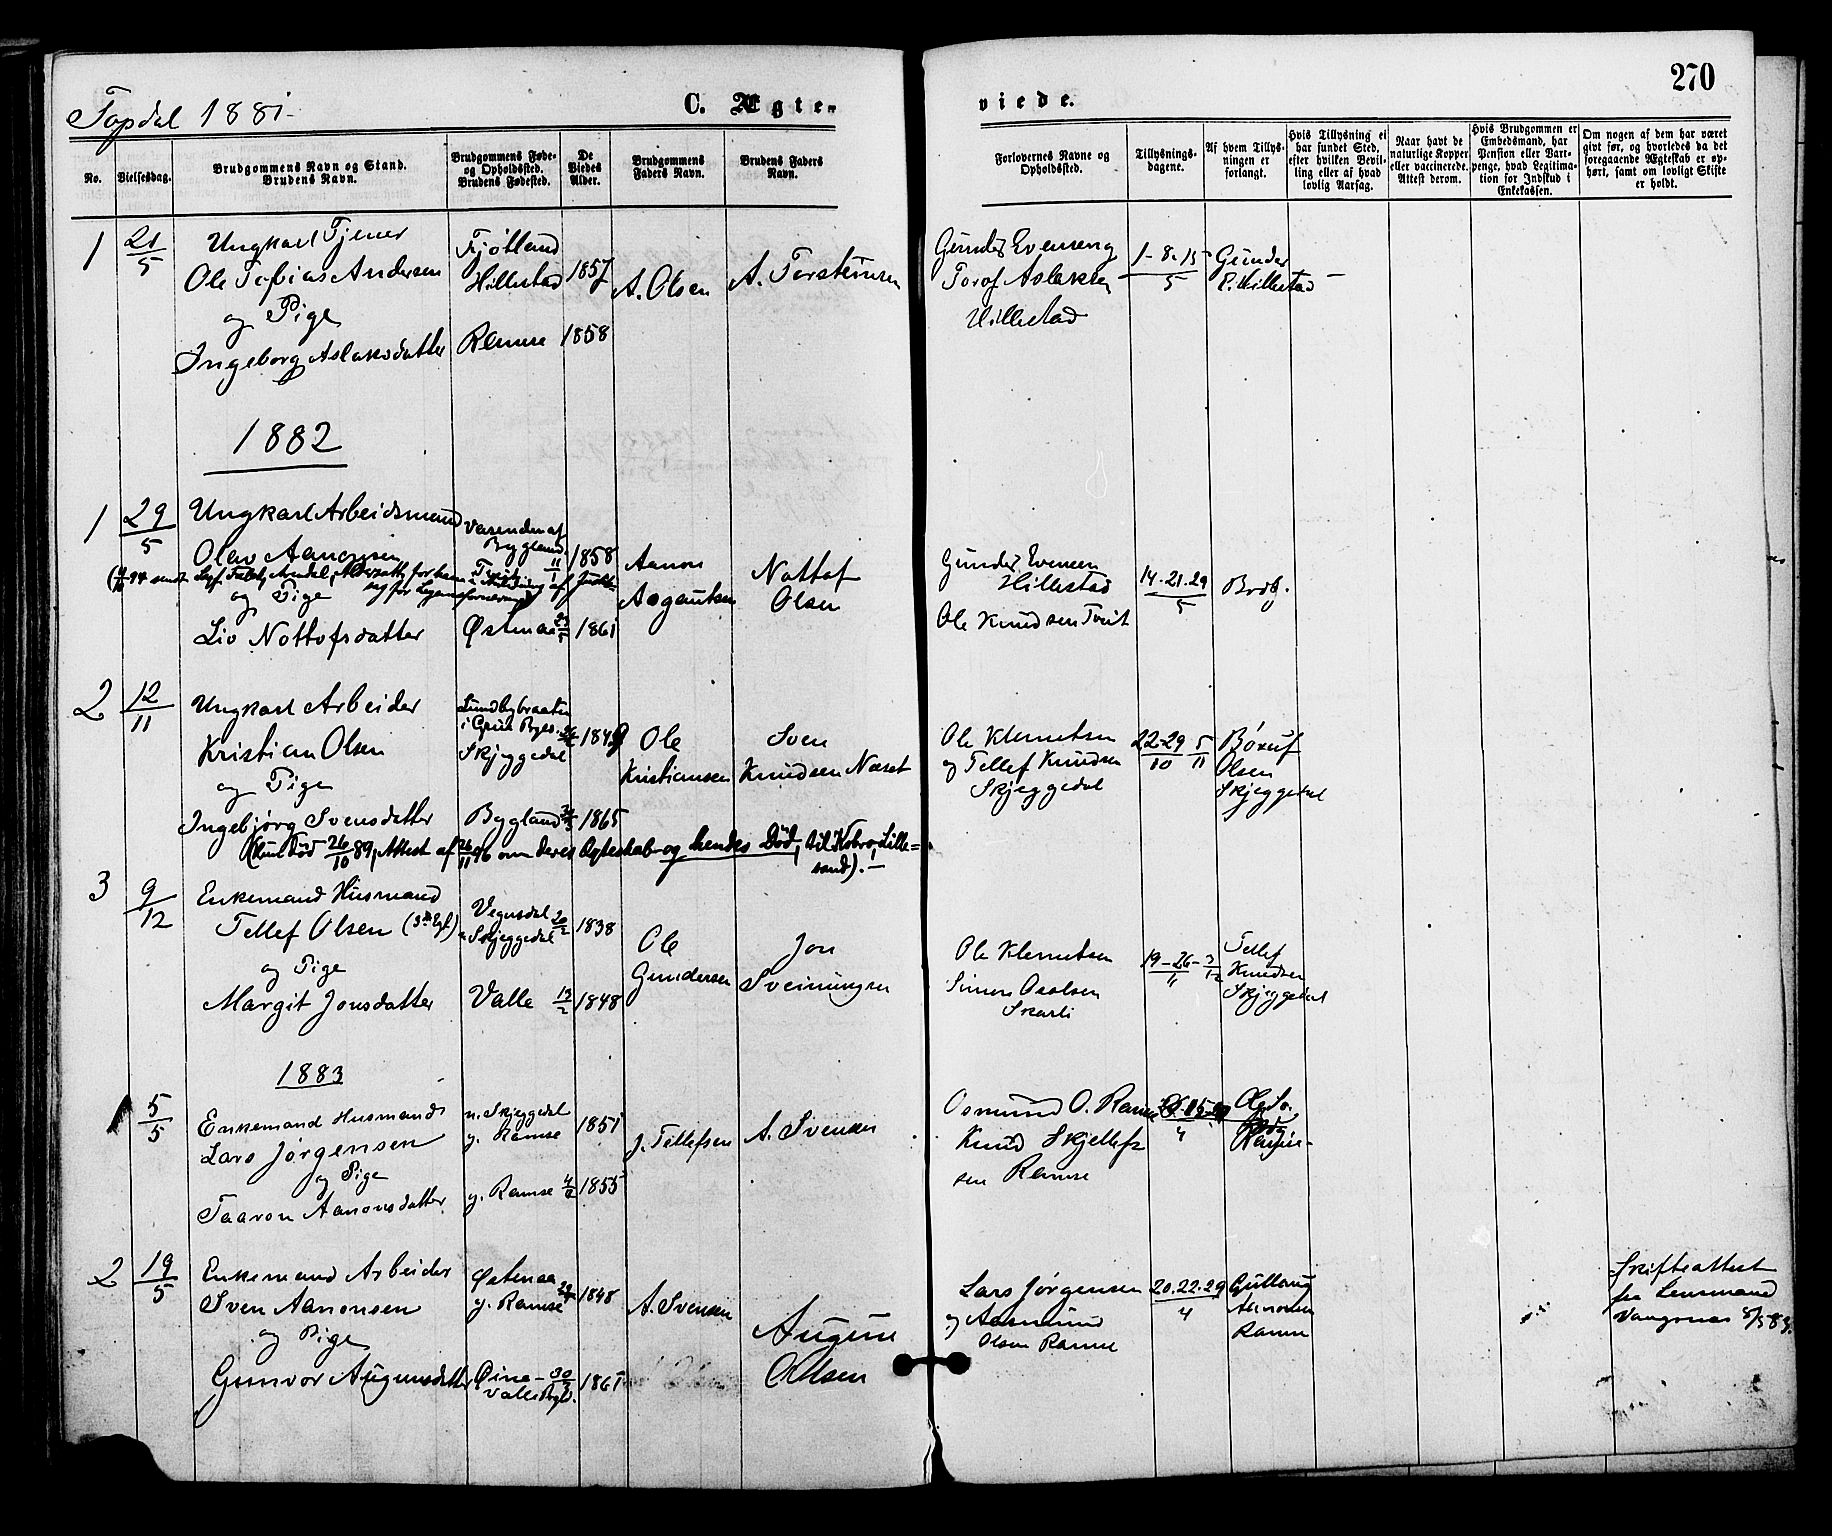 270
Topdal 1881
C. Ægte-
viede.
No.
Vielsesdag.
Brudgommens Navn og Stand.
Brudens Navn.
Brudgommens Føde-
og Opholdssted.
Brudens Fødested.
De
Viedes
Alder.
Brudgommens
Faders Navn.
Brudens Faders
Navn.
Forlovernes Navne og
Opholdssted.
Tillysnings-
dagene.
Af hvem Tillys-
ningen er
forlangt.
Hvis Tillysning ei
har fundet Sted,
efter hvilken Bevil-
ling eller af hvad
lovlig Aarsag.
Naar havt de
naturlige Kopper
eller vaccinerede.
Attest derom.
Hvis Brudgommen er
Embedsmand, har
Pension eller Vart-
penge, hvad Legitima-
tion for Indskud i
Enkekassen.
Om nogen af dem har været
givt før, og hvorledes da det
foregaaende Ægteskab er op-
hørt, samt om lovligt Skifte
er holdt.
1
21/5
Ungkarl Tjener
Ole Tobias Andersen
og Pige
Ingeborg Aslaksdatter
Fjøtland
Hillestad
Ramse
1857
1858
A. Olsen
A. Torsteinsen
Gunder Evensen
Torof Aslaksen
Hillestad
1-8-15
5
Gunder
E. Hillestad
1882
1
29/5
Ungkarl Arbeidsmand
Olav Aanonsen
og Pige
Liv Nottofsdatter
Bygland
Østenaa
1858
1861
Aanon
Asgautsen
Nottof
Olsen
Gunder Evensen
Hillestad
Ole Knudsen Tveit
14-21-29
5
Brdg.
2
12/11
Ungkarl Arbeider
Kristian Olsen
og Pige
Ingebjørg Svensdatter
Lundbybraaten
Skjeggedal
Bygland
1849
1865
Ole
Kristiansen
Sven
Knudsen Næset
Ole Klemetsen
og Tellef Knudsen
Skjeggedal
22-29 5
10 11
Olsen
Skjeggedal
(hun død 26/10 89, Attest af 26/11 96 om deres Ægteskab og hendes Død, til Kobro, Lille-
sand). —
3
9/12
Enkemand Husmand
Tellef Olsen (3die Egt.)
og Pige
Margit Jonsdatter
Vegusdal
Skjeggedal 20/2
Valle 13/2
1838
1848
Ole
Gundersen
Jon
Sveinungsen
Ole Klemetsen
Simon Osolsen
Skarli
19-26-3
11 12
Tellef
Knudsen
Skjeggedal
1883
1
5/5
Enkemand Husmand
Lars Jørgensen
og Pige
Taaron Aanonsdatter
n. Skjeggedal
y. Ramse
y. Ramse
1851
1855
J. Tellefsen
A. Svensen
Osmund O. Ramse
Knud Skjellef-
sen Ramse
4
Ramse
2
19/5
Enkemand Arbeider
Sven Aanonsen
og Pige
Gunvor Augunsdatter
Østenaa
y. Ramse
30
1848
1861
A. Svensen
Augun
Olsen
Lars Jørgensen
og Aasmund
Olsen Ramse
20.22.29
4
Guttorm
Aanonsen
Ramse
Skifteattest
fra Lensmand